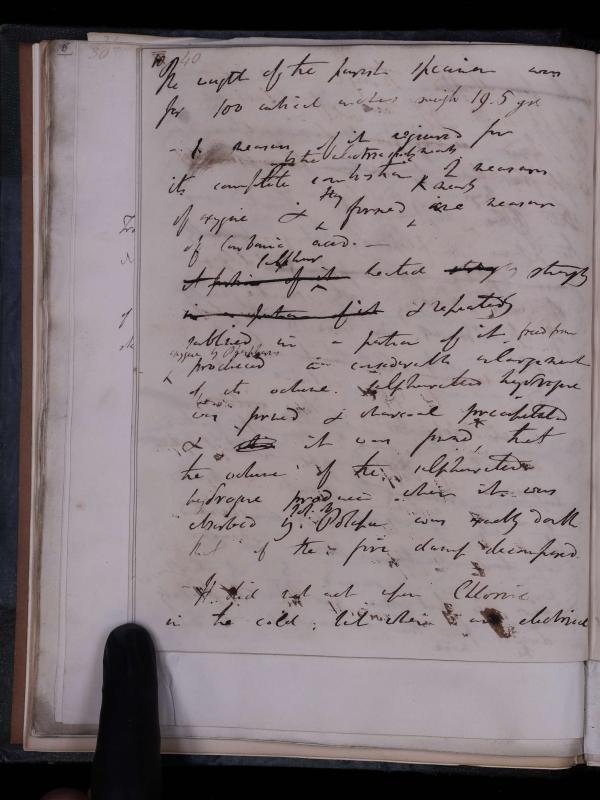 6
30
40
The weight of the purest specimen was
for 100 cubical inches weigh 19.5 grs
1 measure of it required for
by the electric spark nearly
its complete combustion 2 measures
they nearly
of oxygene & formed one measure
of Carbonic acid. —
Sulphur
A portion of it heated strongly strongly
in a portion of it & repeatedly
sublimed in a portion of it freed from
oxygene by Phosphorus
produced a considerable enlargement
of its volume. Sulphuretted hydrogene
was formed & charcoal precipitated
& it was found that
the volume of the sulphuretted
hydrogene produced when it was
absorbed by Sol. of Potassa was exactly double
that of the fire damp decomposed.
It did not act upon Chlorine
in the cold; but when an electrical